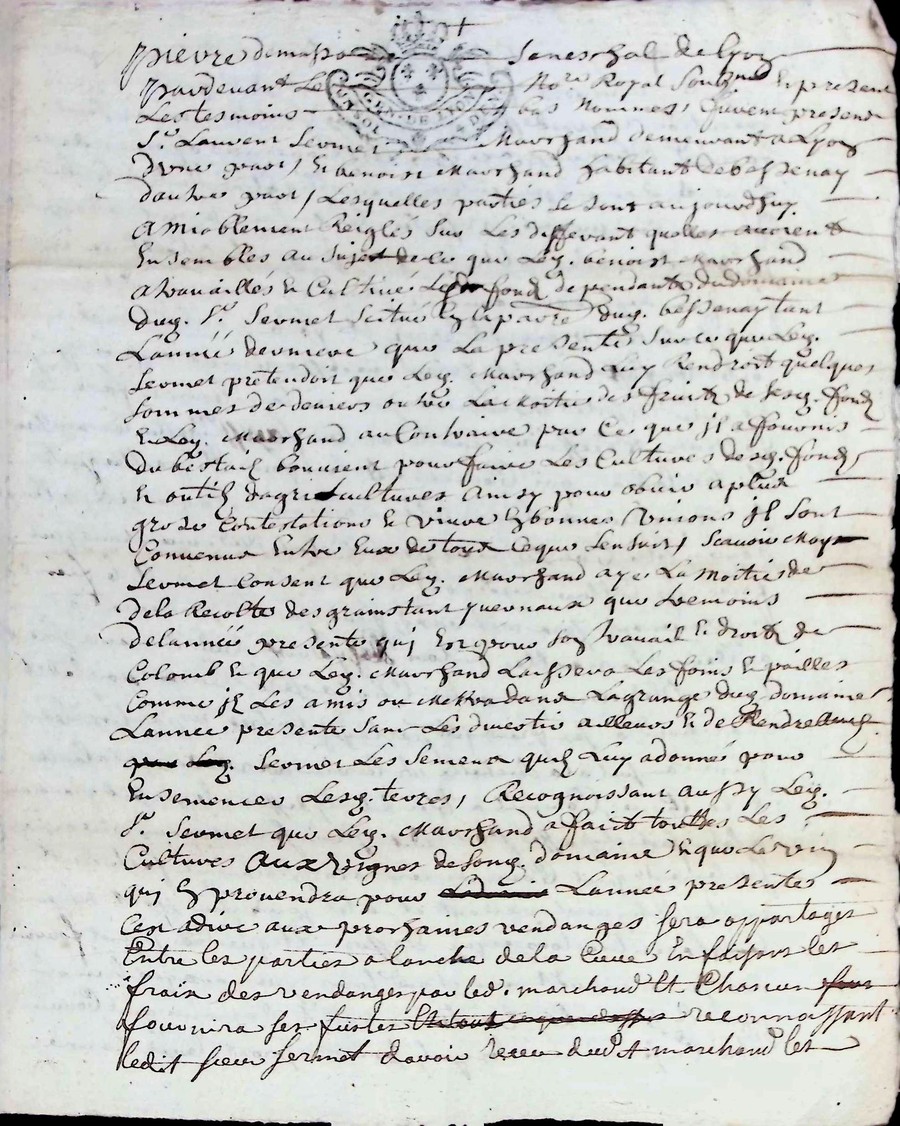 pierre de masso seneschal de Lyon
pardevant Le No.re Royal Soub.né En presence
Les tesmoins bas Nommes, furent presens
S.r Laurent Sermet Marchand demeurant a Lyon
Dune part, Et benoist Marchand habitant de bessenay
dautre part, Lesquelles parties se sont aujourdhuy
amiablement Reiglés sur Les differant quelles avoient
Ensembles au Sujet de Ce que Led. benoist Marchand
a travaillés Et Cultivé Les fondz dependants du domaine
dud. S.r Sermet scitué En la parre dud. bessenay tant
Lannée derniere que La presente Sur ce que Led.
Sermet pretendoit que Led. Marchand Luy Rendroit quelques
sommes de deniers outre La Moitié des fruitz de sesd. fondz
Et Led. Marchand au Contraire par Ce que jl a fournis
Du bestail bouvient pour faire Les Cultures desd. fondz
Et outilz dagricultures Ainsy pour obvier a plus
grose Contestations Et vivre En bonnes Unions jl sont
Convenus Entre Eux de tout Ce que Sensuit, Scavoir
Sermet Consent que Led. Marchand aye La Moitié de
de la Recolte des grains tant yvernaux que tremois
de lannée presente quj Est pour son travail Et droitz de
Colomb Et que Led. Marchand Laissera Les foins Et pailles
Comme jl Les a mis ou Mettra dans La grange dud. domaine
Lannee presente sans Les divestir ailleurs Et de Rendre aud.
Sermet Les semens quil Luy a donné pour
Ensemencer Lesd. terres, Recognoissant aussy Led.
S.r Sermet que Led. Marchand a fait touttes Les
Cultures aux vignes de sond. domaine Et que Le vin
quj En provendra pour Lannée presente
Cest a dire aux prochaines vendanges sera appartagés
Entre les parties a lanche de la Cuve En faisant les
fraix des vendanges par led. marchand Et Chascun
fournira ses futes reconnaissant
ledit sieur sermet davoir receu dud.t marchand les